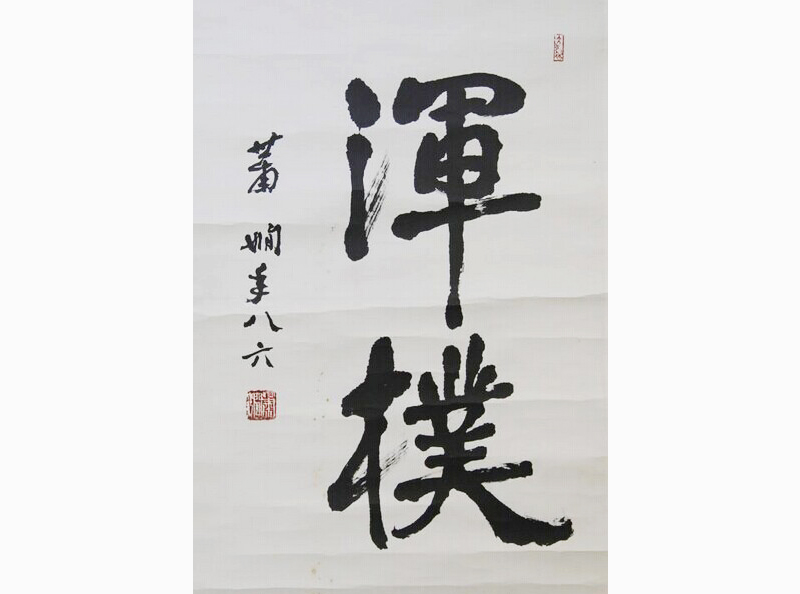 渾樸
蕭嫻年八六